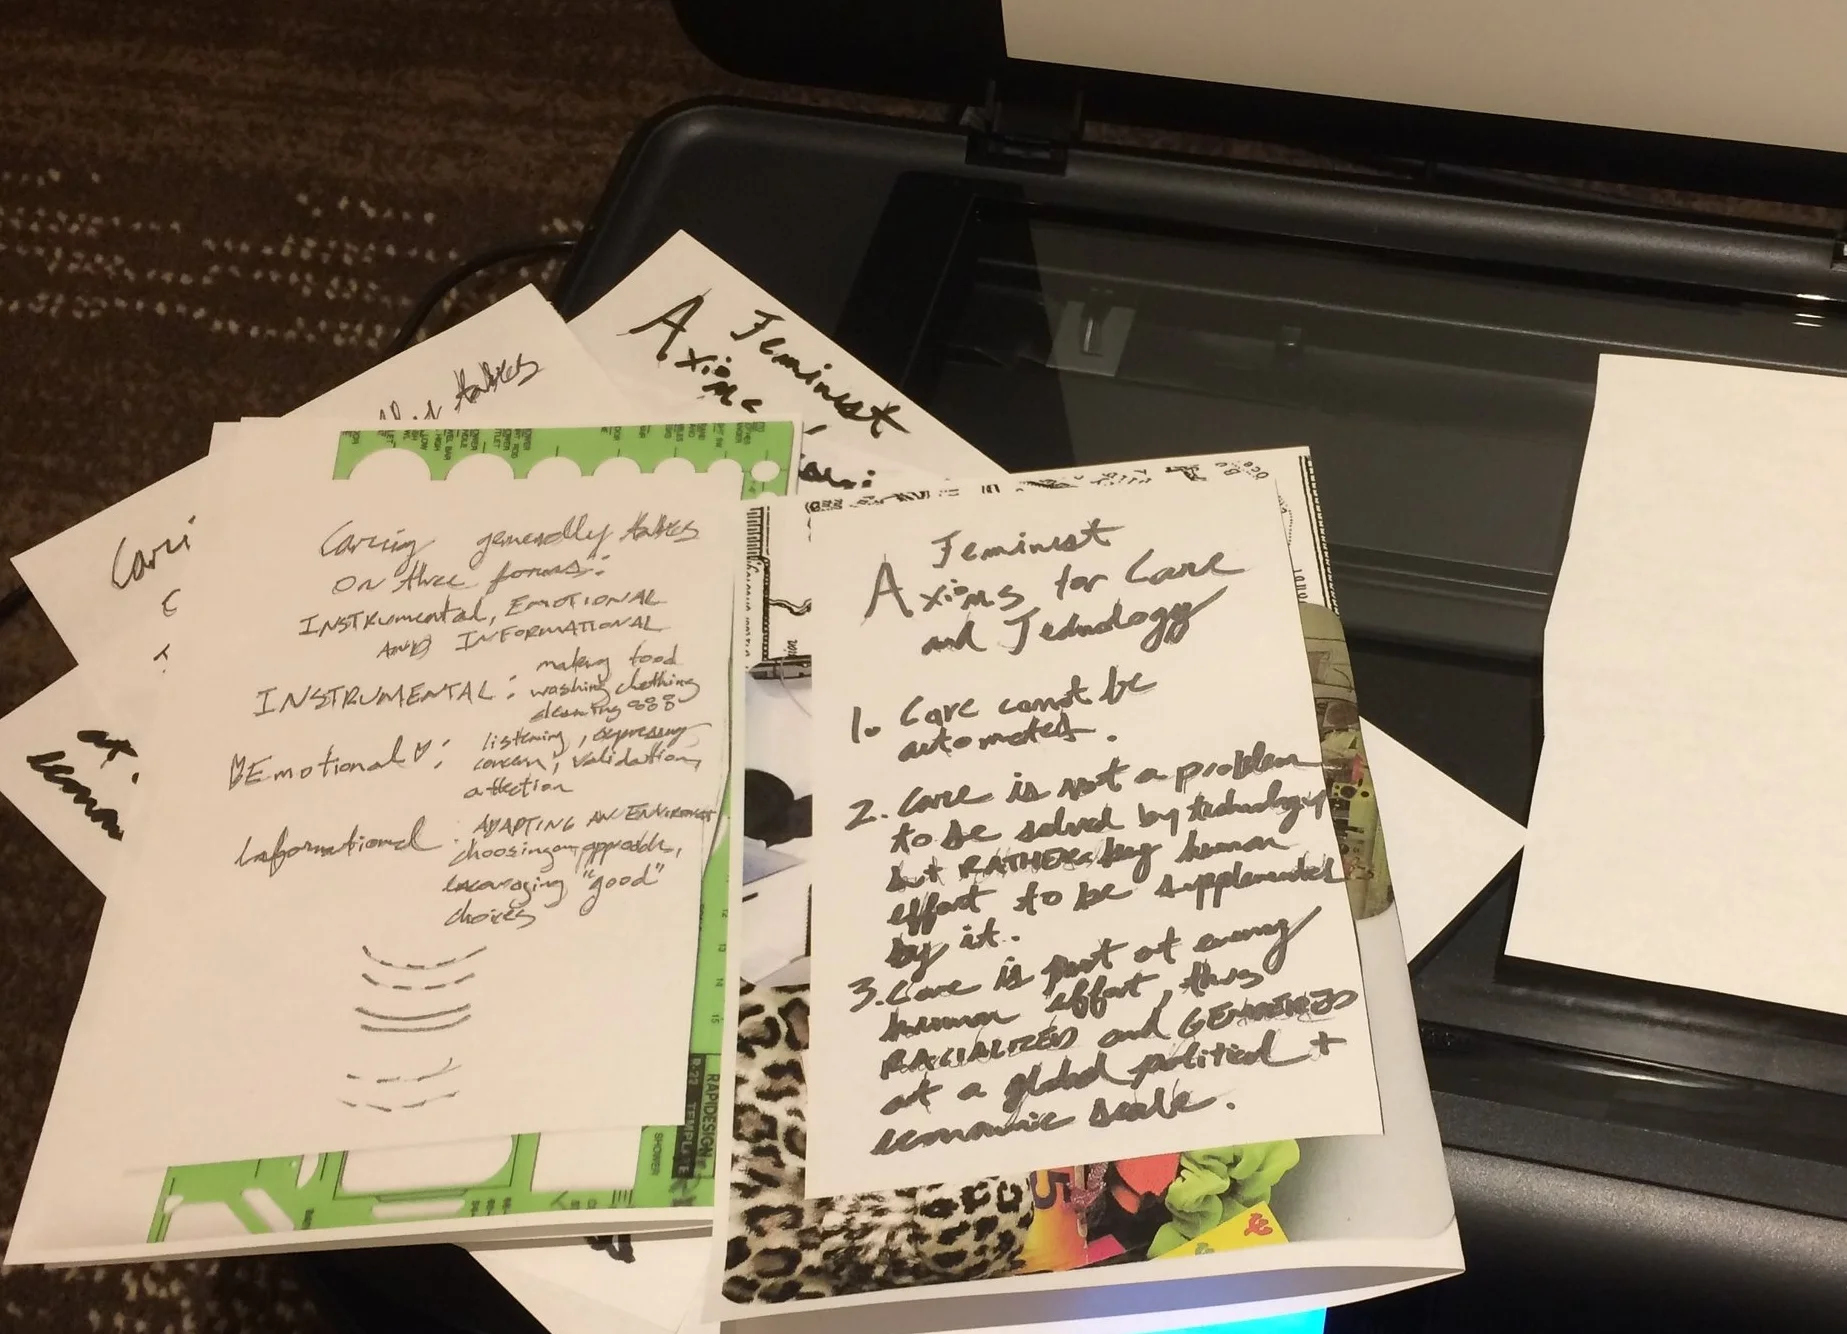 takes
Feminist
Axioms
Cari
at.
Caring generally takes
on three forms:
INSTRumental, EMOTIONAL
AND INFORMATIONAL
INSTRUMENTAL: making food
washing clothing
cleaning
Emotional: listening, expressing
concern, validation,
affection
Informational: ADAPTING AN ENVIRONMENT
choosing an approach,
encouraging "good"
choices
RAPIDESIGN
R-22 TEMPLATE
SHOWER
Feminist
Axioms for Care
and Technology
1. Care cannot be
automated.
2. Care is not a problem
to be solved by technology
but RATHER by human
effort to be supplemented
by it.
3. Care is part of
human effort, thus
RACIALIZED and GENDERED
at a global political +
economic scale.